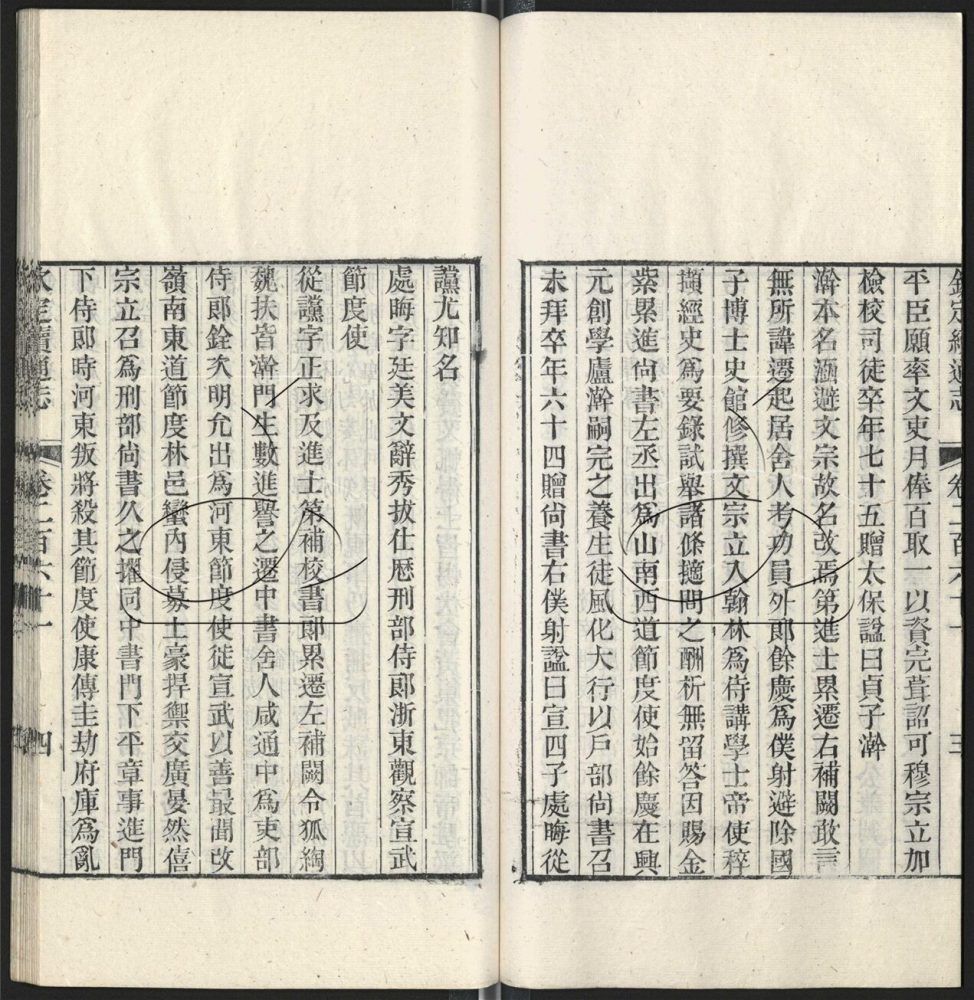 欽定續通志 卷二百六十一 三
平臣願率文吏月俸百取一以資完葺詔可穆宗立加
檢校司徒卒年七十五贈太保諡曰貞子澣
澣本名涵避文宗故名改焉第進士累遷右補闕敢言
無所諱遷起居舍人考功員外郎餘慶爲僕射避除國
子博士史館修撰文宗立入翰林爲侍講學士帝使稡
擷經史爲要錄試舉諸條擿問之酬析無留答因賜金
紫累進尙書左丞出爲山南西道節度使始餘慶在興
元創學廬澣嗣完之養生徒風化大行以戶部尙書召
未拜卒年六十四贈尙書右僕射諡曰宣四子處晦從
讜尤知名
處晦字廷美文辭秀拔仕歷刑部侍郎浙東觀察宣武
節度使
從讜字正求及進士第補校書郎累遷左補闕令狐綯
魏扶皆澣門生數進譽之遷中書舍人咸通中爲吏部
侍郎銓次明允出爲河東節度使徙宣武以善最聞改
嶺南東道節度林邑蠻內侵募土豪捍禦交廣晏然僖
宗立召爲刑部尙書久之擢同中書門下平章事進門
下侍郎時河東叛將殺其節度使康傳圭劫府庫爲亂
欽定續通志 卷二百六十一 四